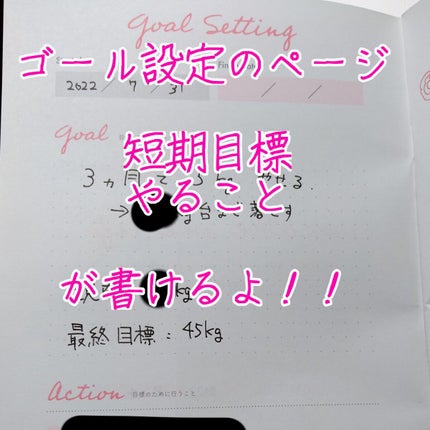 Goal Setting
ゴール設定のページ
2022 / 7 / 31
/ /
Goal
短期目標
3ヵ月で
やせる.
やること
→
台まで落とす
が書けるよ！！
kg
最終目標：45kg
Action 目標のために行うこと